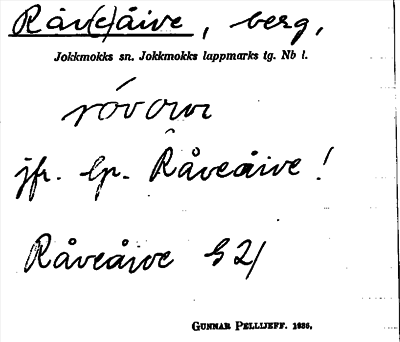 Råv(e)åive, berg,
Jokkmokks sn. Jokkmokks lappmarks tg. Nb l.
jfr. lp. Råveåive!
Råveåive G 2/
GUNNAR PELLIJEFF. 1936.